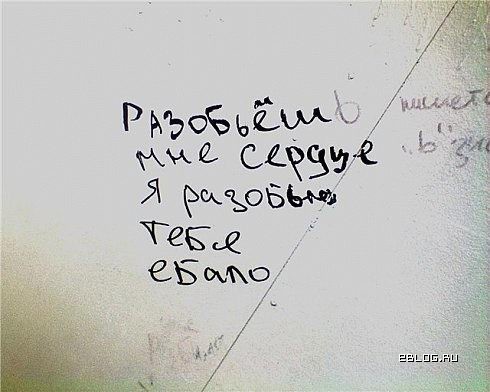 Разобьёшь
мне сердце
я разобью
тебе
ебало
пишется
"ь"
2BLOG.RU